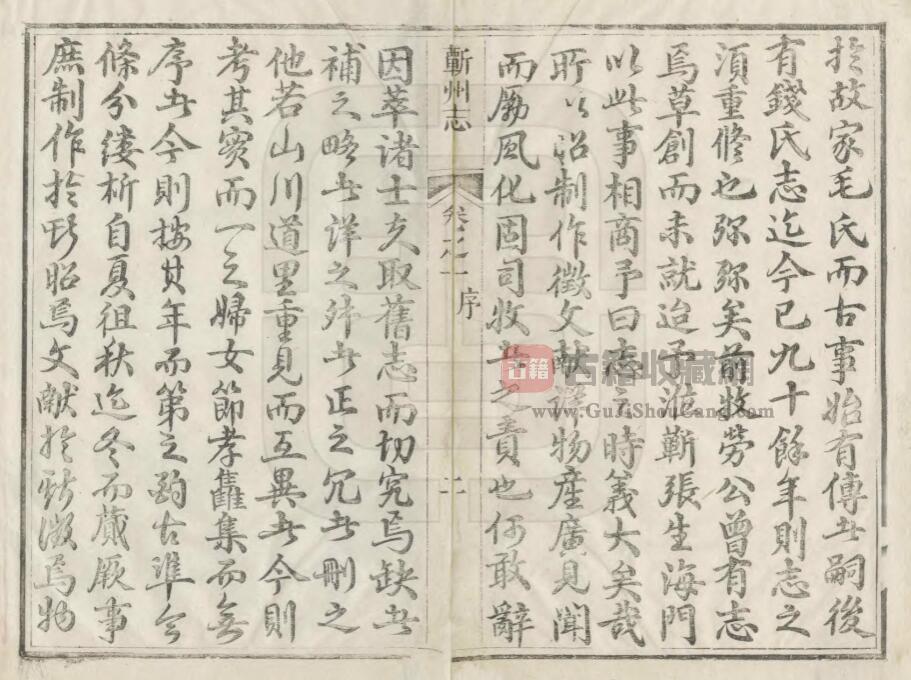 於故家毛氏而古事始有傳者嗣後
有錢氏志迄今已九十餘年則志之
須重修也弥弥矣前牧勞公曾有志
焉草創而未就迨予涖蘄張生海門
以此事相商予曰志之時義大矣哉
所以昭制作徵文献譁物産廣見聞
而勵風化固司牧者之責也何敢辭
蘄州志
卷之一 序
二
因萃诸士夫取舊志而切究焉缺者
補之略者详之舛者正之冗者刪之
他若山川道里重見而互異者今則
考其实而一之婦女節孝雜集而無
序者今則按其年而第之酌古準今
條分缕析自夏徂秋迄冬而蕆厥事
庶制作於斯昭焉文献於斯徵焉物
古籍
古籍收藏网
www.GuJiShouCang.com